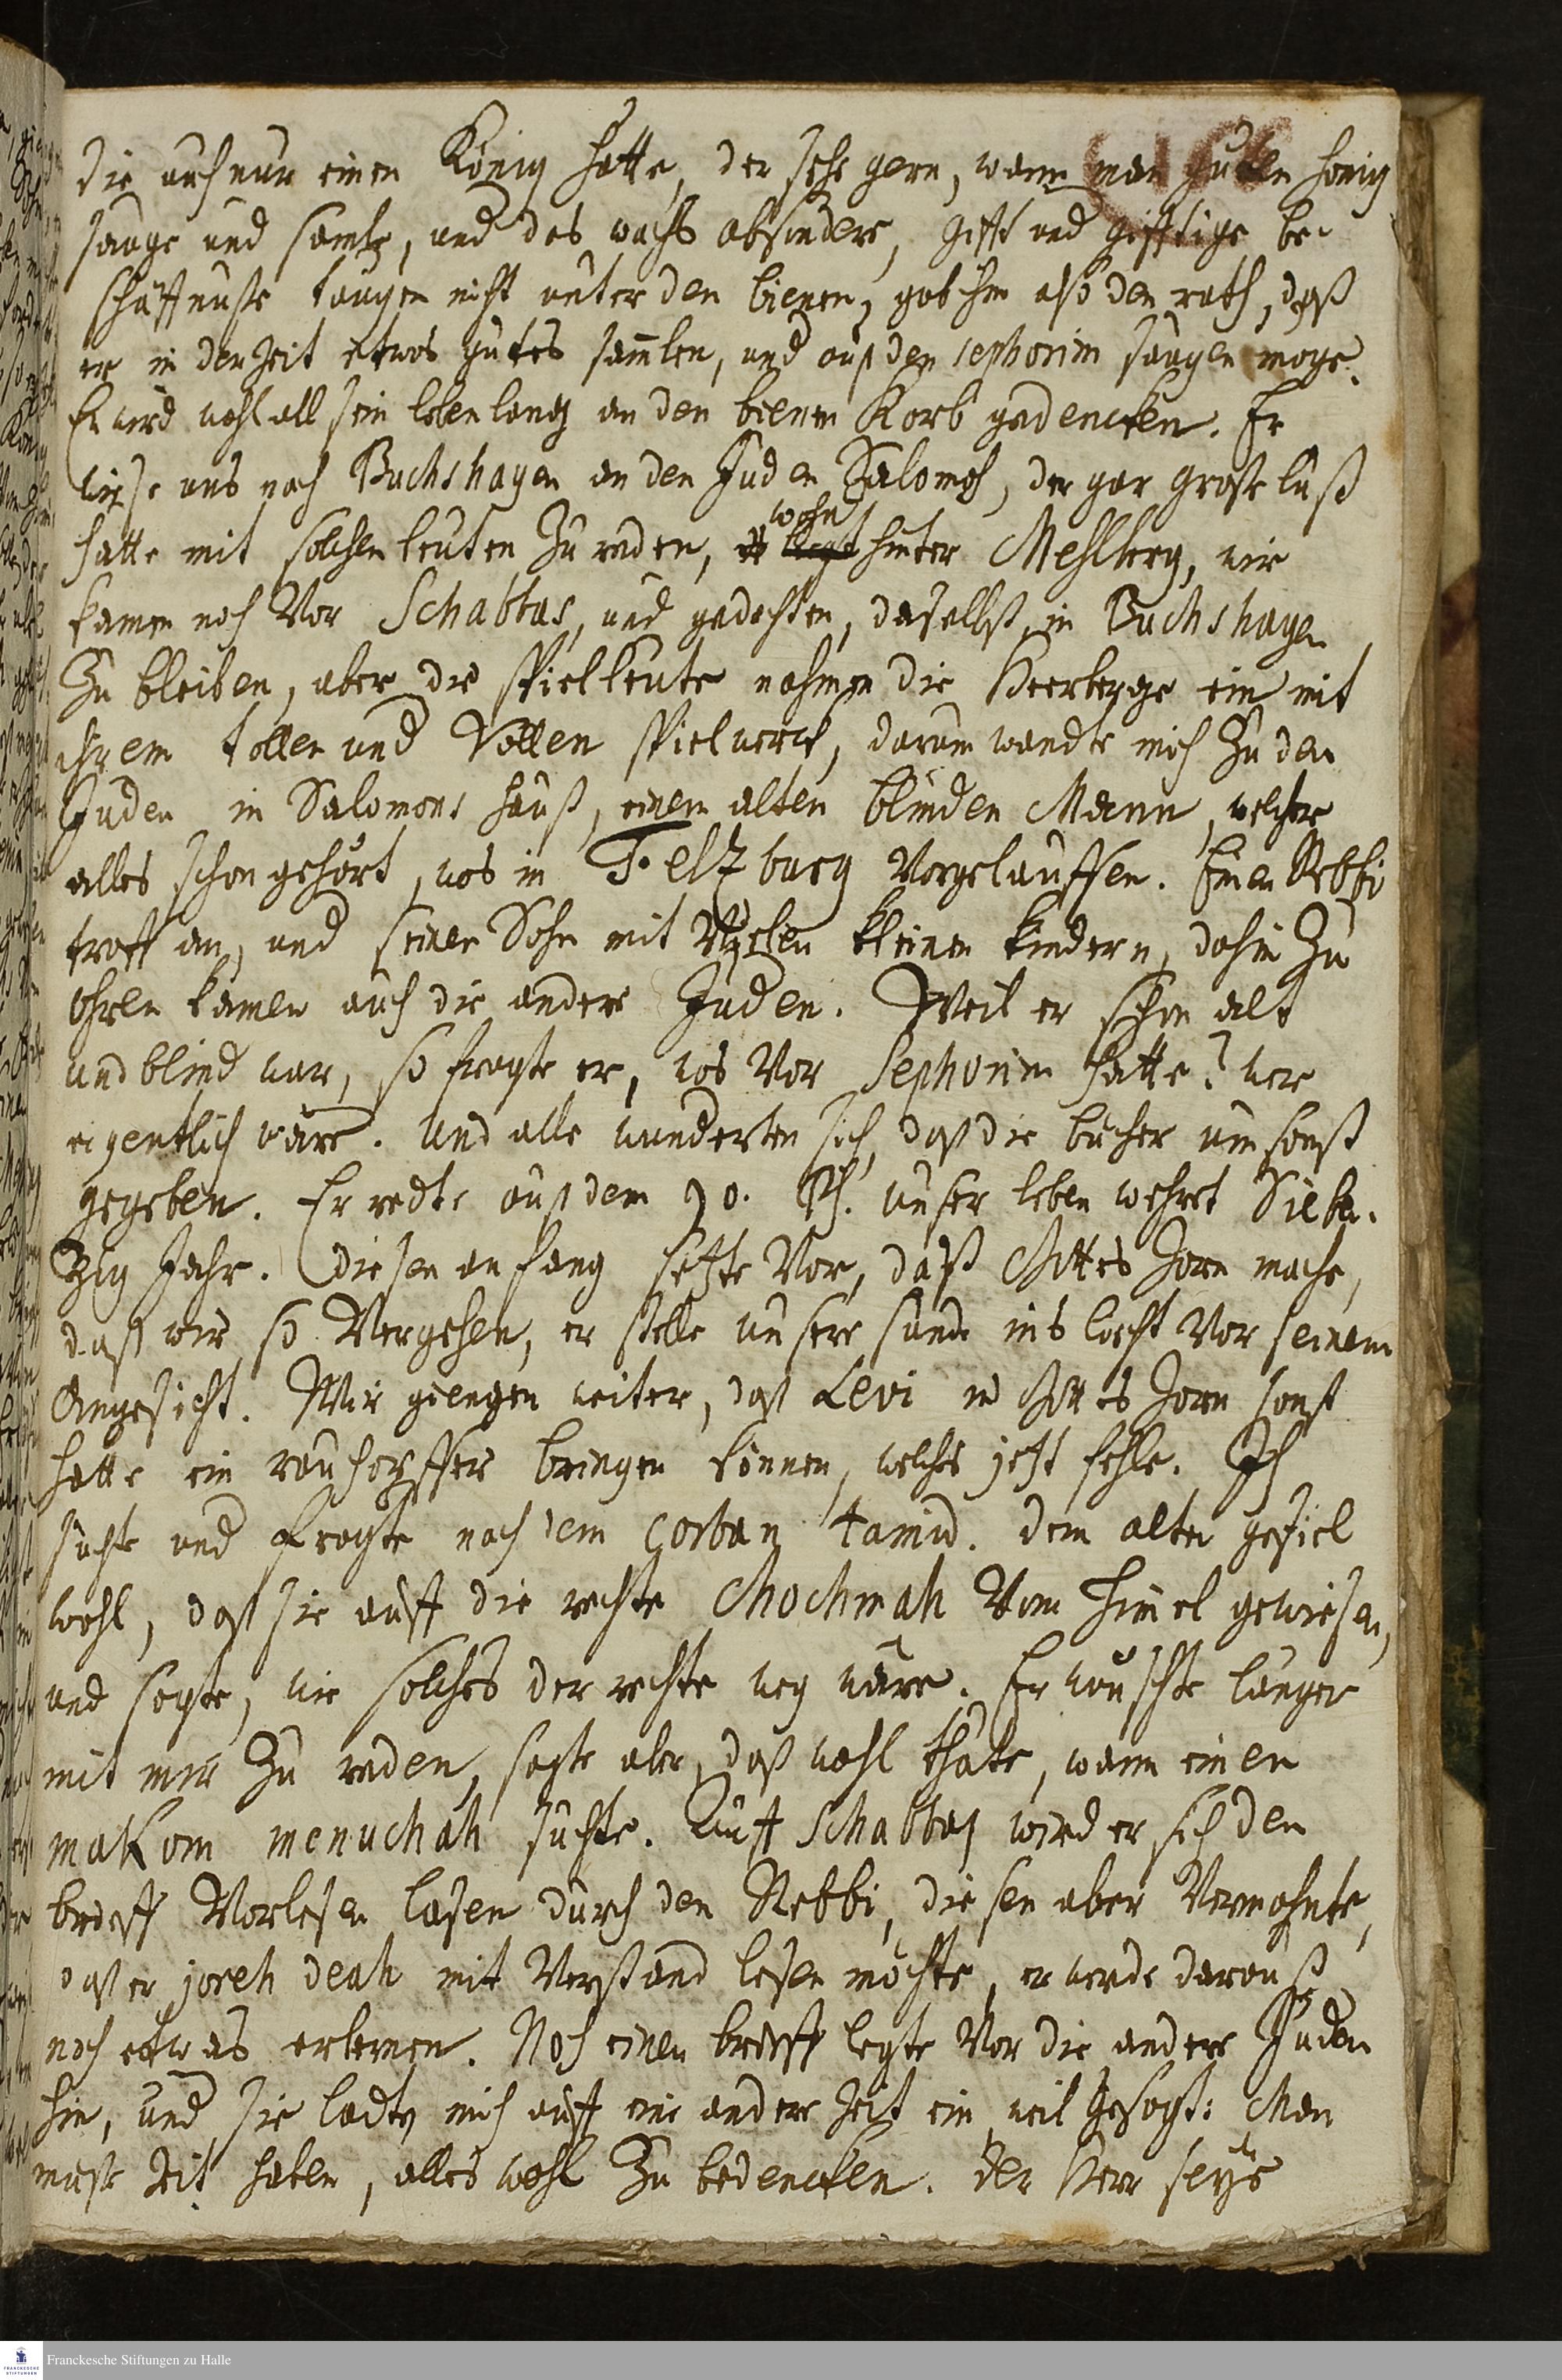 die auch nur einen König hatte, der sehe gern, wann man guten honig
sauge und samle, und das wachs absondere, gifft und gifftige be-
schaffnuße taugen nicht unter den bienen, gab ihm also den rath, daß
er in der Zeit etwas gutes samlen, und auß den sephorim saugen moge.
Er wird wohl all sein lebenlang an den bienen Korb gedencken. Er
wieße uns nach Buchshagen an den Juden Salomoh, der gar große lust
hatte mit solchen leuten zu reden, wohn hinter Mehlberg, wir
kamen noch vor Schabbas, und gedachten, daselbst in Buchshagen
zu bleiben, aber die spielleute nahmen die Heerberge ein mit
ihrem tollen und vollen spielwerck, darum wandte mich zu den
Juden in Salomons hauß, einem alten blinden Mann, welcher
alles schon gehört, was in Felzburg vorgelauffen. Einen Rebbi
traff an, und seinen Sohn mit vielen kleinen kindern, dahin zu
ohren kamen auch die andere Juden. Weil er schon alt
und blind war, so fragte er, was vor Sephorim hatte? wer
eigentlich wäre. Und alle wunderten sich, daß die bücher umsonst
gegeben. Er redte auß dem 90. Ps. Unser leben wehret Sieben-
zig Jahr. Diesen anfang setzte vor, daß Gottes Zorn mache,
daß wir so vergehen, er stelle unsere sünde ins liecht vor seinem
Angesicht. Wir giengen weiter, daß Levi in Gottes Zorn sonst
hatte ein rauchopffer bringen können, welches jetzt fehle. Ich
suchte und fragte nach dem Corban tamid. dem alten gefiel
wohl, daß sie auff die rechte Chochmah vom Himel gewiesen,
und sagte, wie solches der rechte weg wäre. Er wünschte länger
mit mir zu reden, sagte aber, daß wohl thäte, wann einen
makom menuchah suchte. Auff Schabbas wird er sich den
brieff vorlesen laßen durch den Rebbi, diesen aber vermahnte,
daß er joreh deah mit Verstand lesen möchte, er werde darauß
noch etwas erlernen. Noch einen brieff legte vor die andere Juden
hin, und sie ladten mich auff eine andere Zeit ein, weil gesagt: Man
muße Zeit haben, alles wohl zu bedencken. Der Herr seye
Franckesche Stiftungen zu Halle